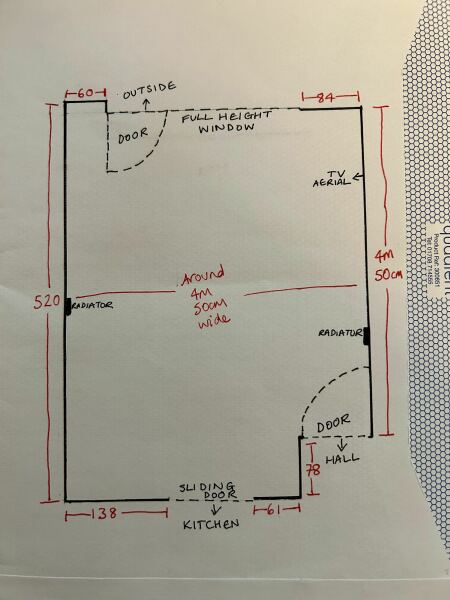 60
OUTSIDE
84
DOOR
FULL HEIGHT
WINDOW
TV
AERIAL
4M
50cm
Around
4M
50cm
wide
520
RADIATOR
RADIATOR
DOOR
HALL
78
SLIDING
DOOR
KITCHEN
138
61